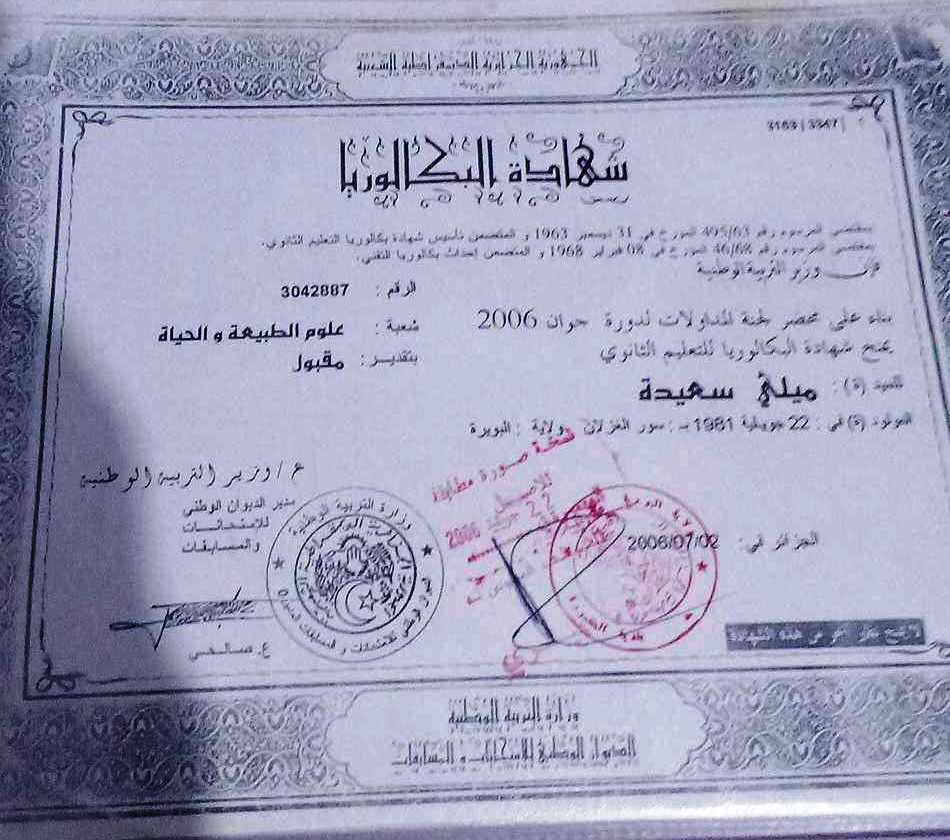 الجمهورية الجزائرية الديمقراطية الشعبية
3163 | 3347 |
شهادة البكالوريا
بمقتضى المرسوم رقم 495/63 المؤرخ في 31 ديسمبر 1963 و المتضمن تأسيس شهادة بكالوريا التعليم الثانوي.
بمقتضى المرسوم رقم 46/68 المؤرخ في 08 فبراير 1968 و المتضمن إحداث بكالوريا التقني.
إن وزير التربية الوطنية
الرقم : 3042887
بناء على محضر لجنة المداولات لدورة جوان 2006
شعبة : علوم الطبيعة و الحياة
يمنح شهادة البكالوريا للتعليم الثانوي
بتقدير : مقبول
للسيد (ة) : ميلي سعيدة
المولود (ة) في : 22 جويلية 1981 بـ : سور الغزلان ولاية : البويرة
نسخة صورة مطابقة
للأصل
2006
ع / وزير التربية الوطنية
مدير الديوان الوطني
للامتحانات
والمسابقات
وزارة التربية الوطنية
الديوان الوطني للامتحانات و المسابقات
الجزائر في : 2006/07/02
ع. صالحي
هذه الشهادة
وزارة التربية الوطنية
الديوان الوطني للامتحانات و المسابقات